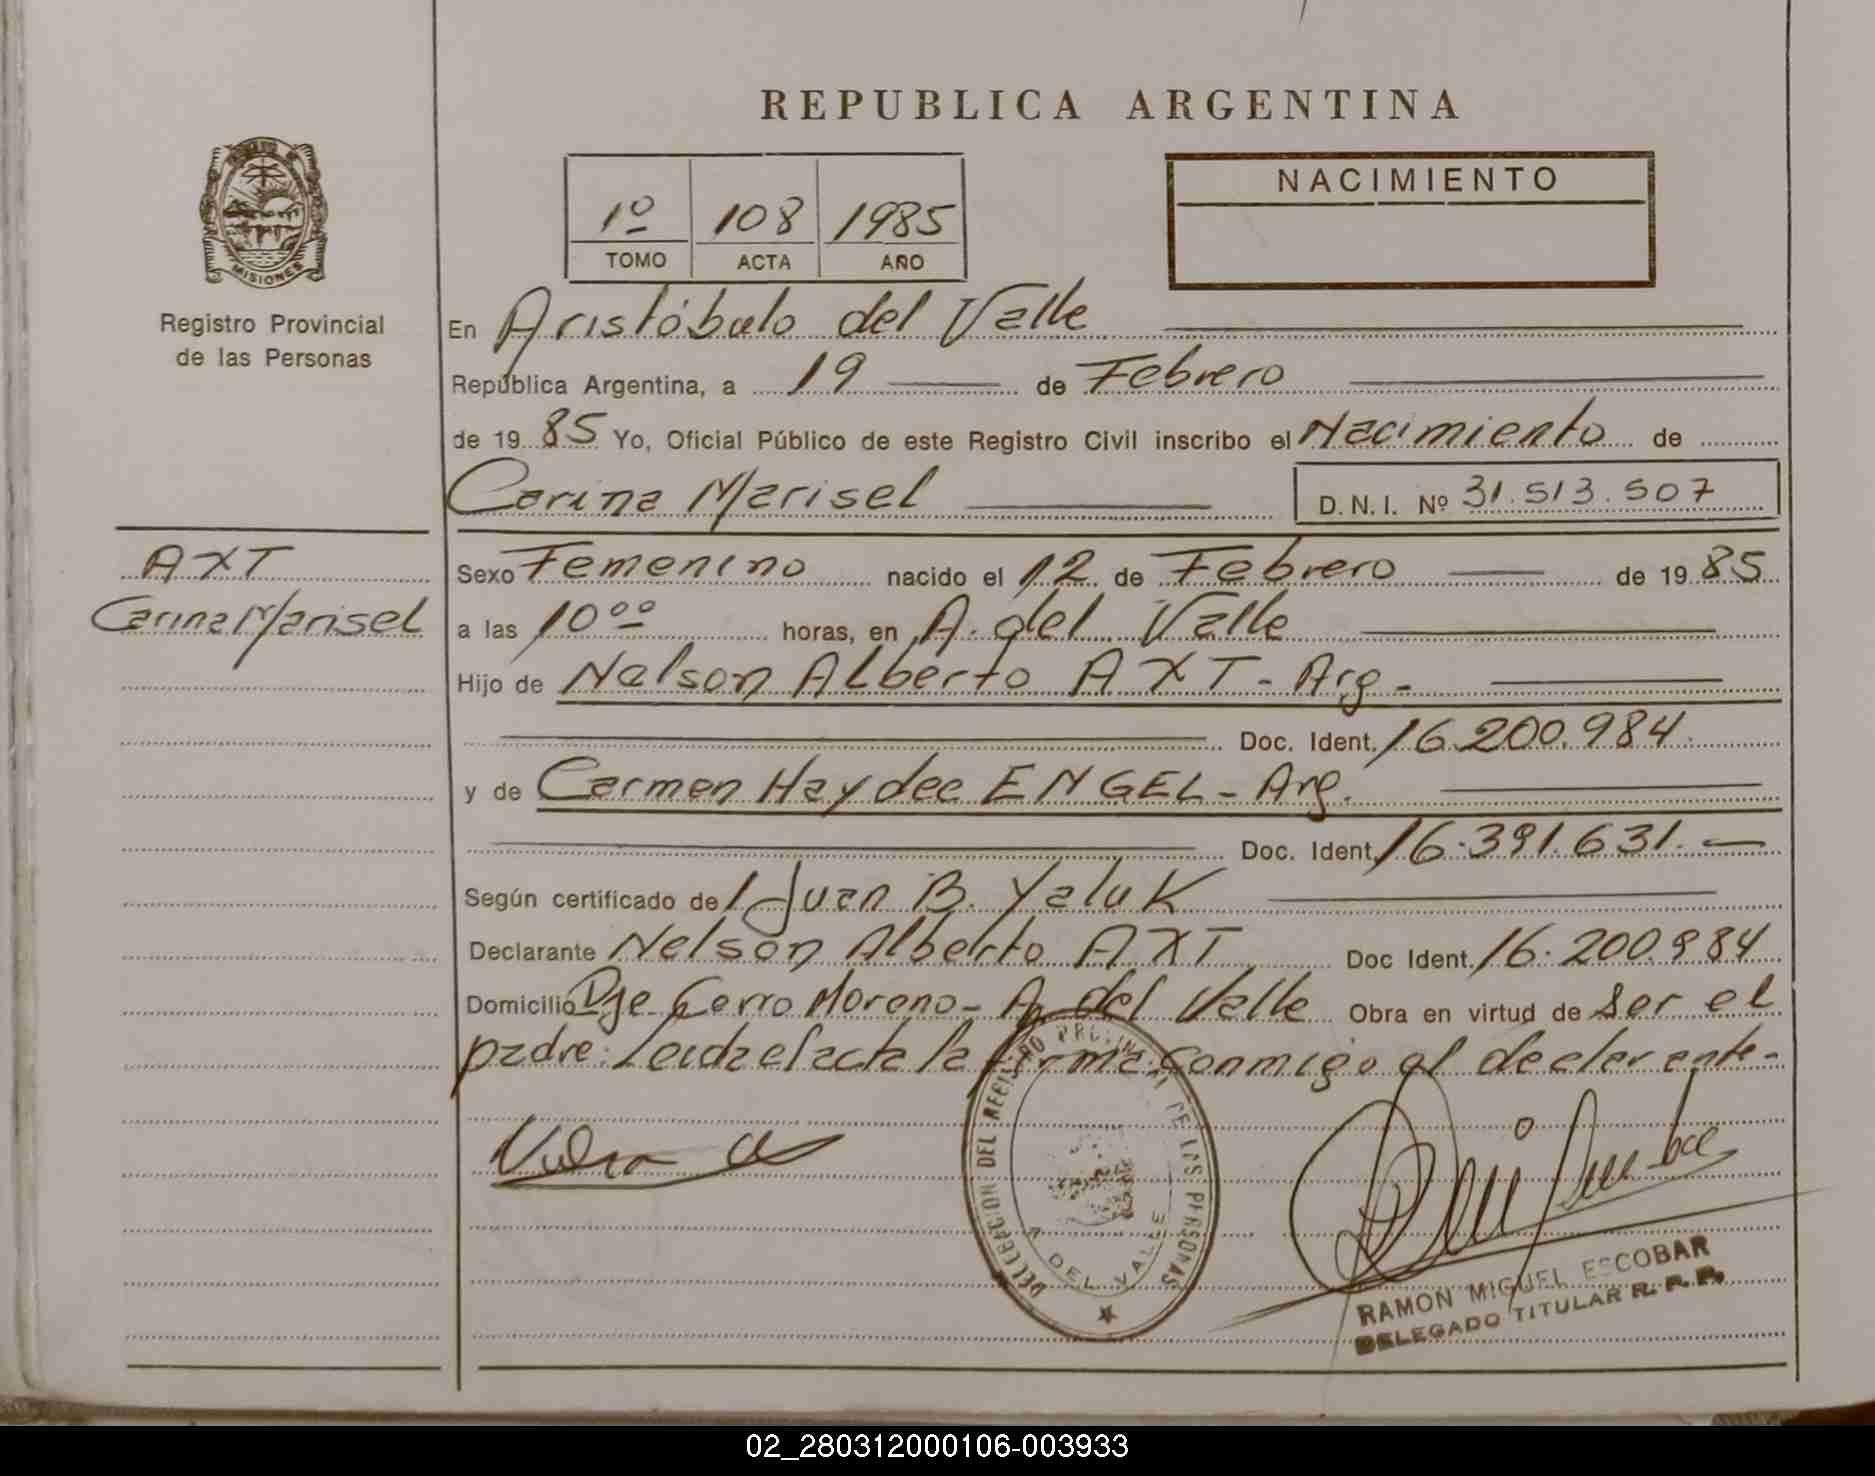 REPUBLICA ARGENTINA
MISIONES
Registro Provincial
de las Personas
1º 108 1985
TOMO ACTA AÑO
NACIMIENTO
En Aristóbulo del Valle
República Argentina, a 19 de Febrero
de 1985 Yo, Oficial Público de este Registro Civil inscribo el Nacimiento de
Carina Marisel D.N.I. Nº 31.513.507
AXT
Carina Marisel
Sexo Femenino nacido el 12 de Febrero de 1985
a las 10ºº horas, en A. del Valle
Hijo de Nelson Alberto AXT - Arg -
Doc. Ident. 16.200.984
y de Carmen Haydee ENGEL - Arg.
Doc. Ident. 16.391.631.-
Según certificado de Juan B. Yaluk
Declarante Nelson Alberto AXT Doc Ident. 16.200.984
Domicilio Pje Cerro Moreno - A. del Valle Obra en virtud de ser el
padre: Leida el acta la firma conmigo el declarante -
DELEGACION DEL REGISTRO PROVINCIAL DE LAS PERSONAS
A DEL VALLE
RAMON MIGUEL ESCOBAR
DELEGADO TITULAR R. P. P.
02_280312000106-003933